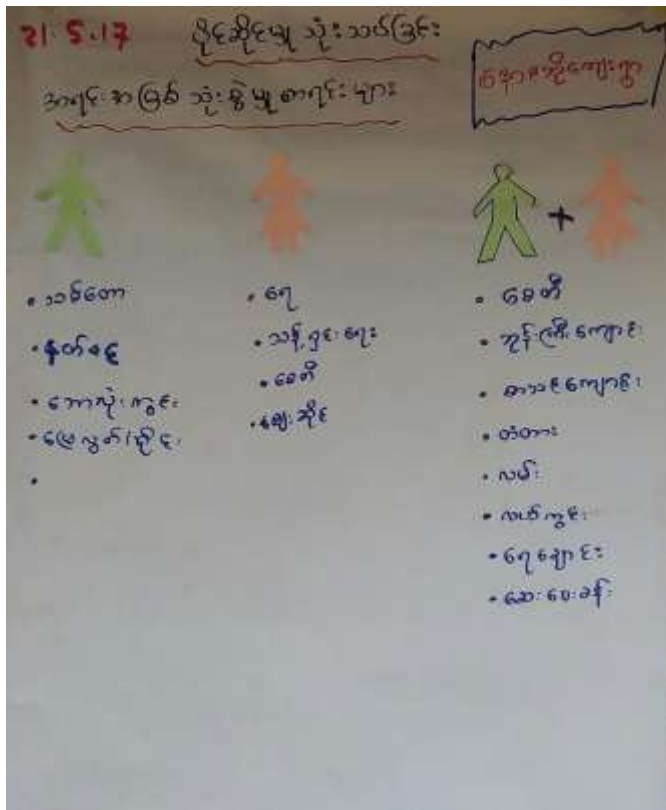 21.5.17 ပိုင်ဆိုင်မှု သုံးသပ်ခြင်း
အရင်းအမြစ် သုံးစွဲမှု စာရင်းများ
ကျေးရွာ
+
• သစ်တော
• နတ်စင်
• ဘောလုံးကွင်း
• မြေလွတ်/ရိုင်း
•
• ရေ
• သန့်ရှင်းရေး
• စေတီ
• ဈေးဆိုင်
• စေတီ
• ဘုန်းကြီးကျောင်း
• စာသင်ကျောင်း
• တံတား
• လမ်း
• လယ်ကွင်း
• ရေချောင်း
• ဆေးပေးခန်း